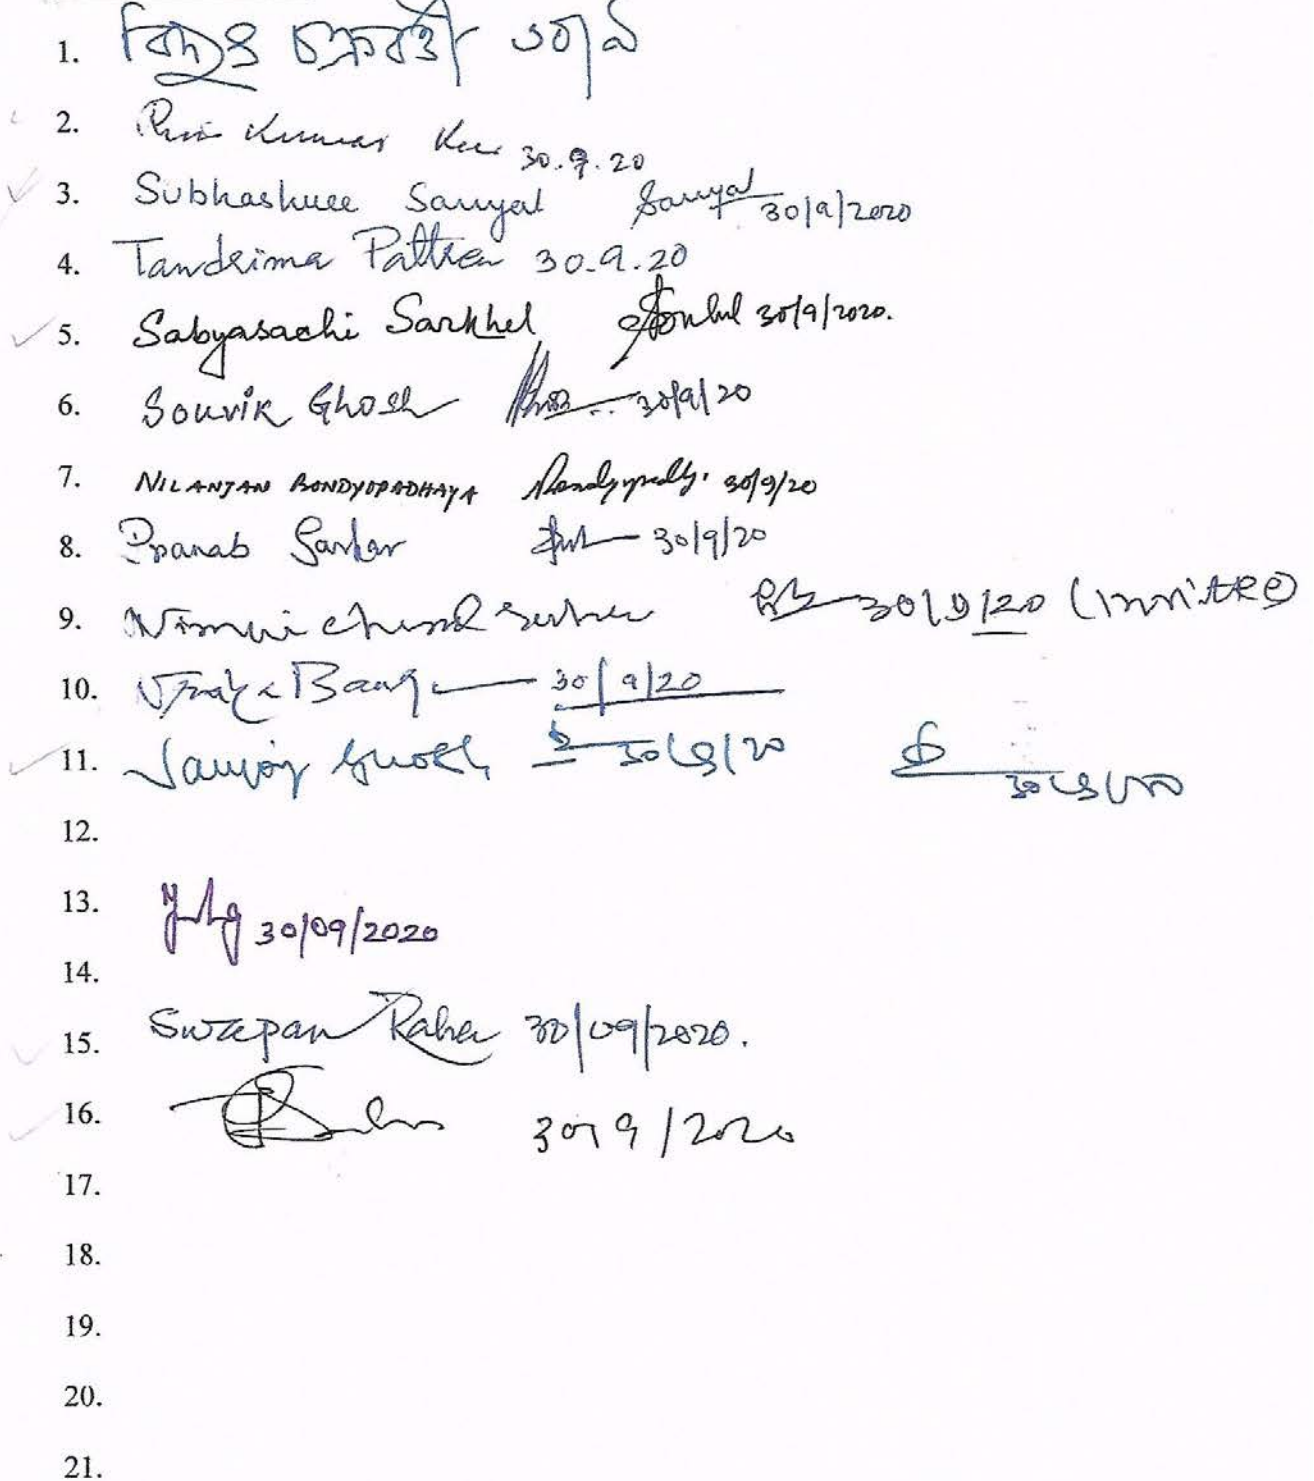 1. বিদ্যুৎ চক্রবর্তী ৩০/৯
2. Kumar 30.9.20
3. Subhashree Sanyal Sanyal 30/9/2020
4. Tandrima Pattrea 30.9.20
5. Sabyasachi Sarkhel 30/9/2020.
6. Souvik Ghosh 30/9/20
7. NILANJAN BANDYOPADHAYA 30/9/20
8. Pranab Sarkar 30/9/20
9. 30/9/20 (Invitee)
10. 30/9/20
11. Sanjoy Ghosh 30/9/20
12.
13. 30/09/2020
14.
15. Swapan Raha 30/09/2020.
16. 30/9/2020
17.
18.
19.
20.
21.